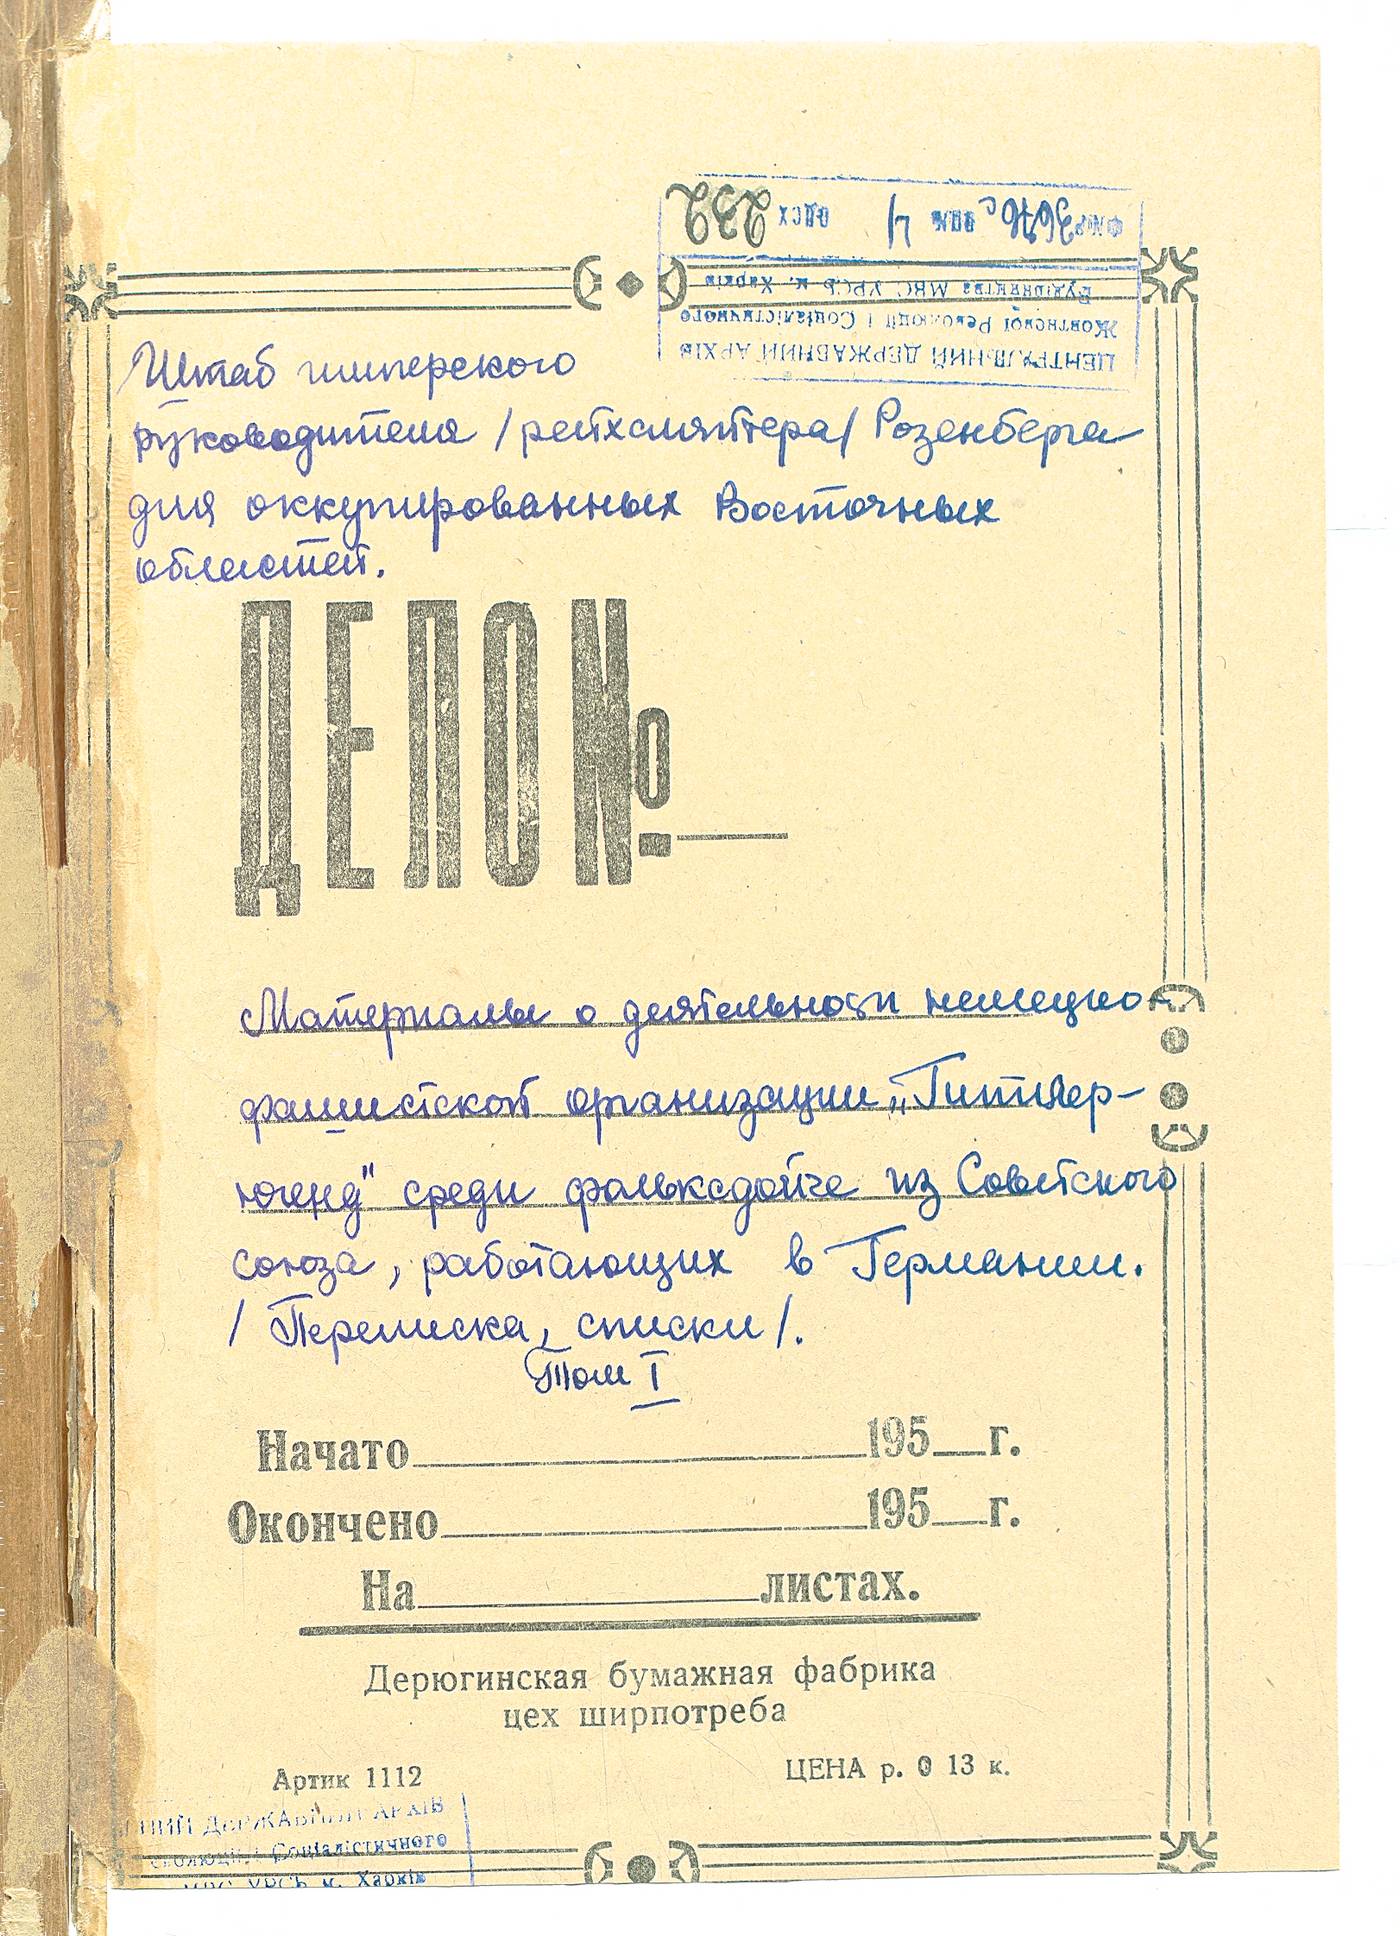 ЦЕНТРАЛЬНИЙ ДЕРЖАВНИЙ АРХІВ
Жовтневої Революції і Соціалістичного
Будівництва МВС УРСР м. Харків
ФНР 3676с ОПМ 4 ОДСХ 232
Штаб имперского
руководителя /рейхсляйтера/ Розенберга
для оккупированных Восточных
областей.
ДЕЛО №
Материалы о деятельности немецко-
фашистской организации "Гитлер-
югенд" среди фольксдойче из Советского
союза, работающих в Германии.
/Переписка, списки/.
Том I
Начато 195 г.
Окончено 195 г.
На листах.
Дерюгинская бумажная фабрика
цех ширпотреба
Артик 1112
ЦЕНА р. 0 13 к.
ДЕРЖАВНИЙ АРХІВ
Соціалістичного
МВС УРСР м. Харків